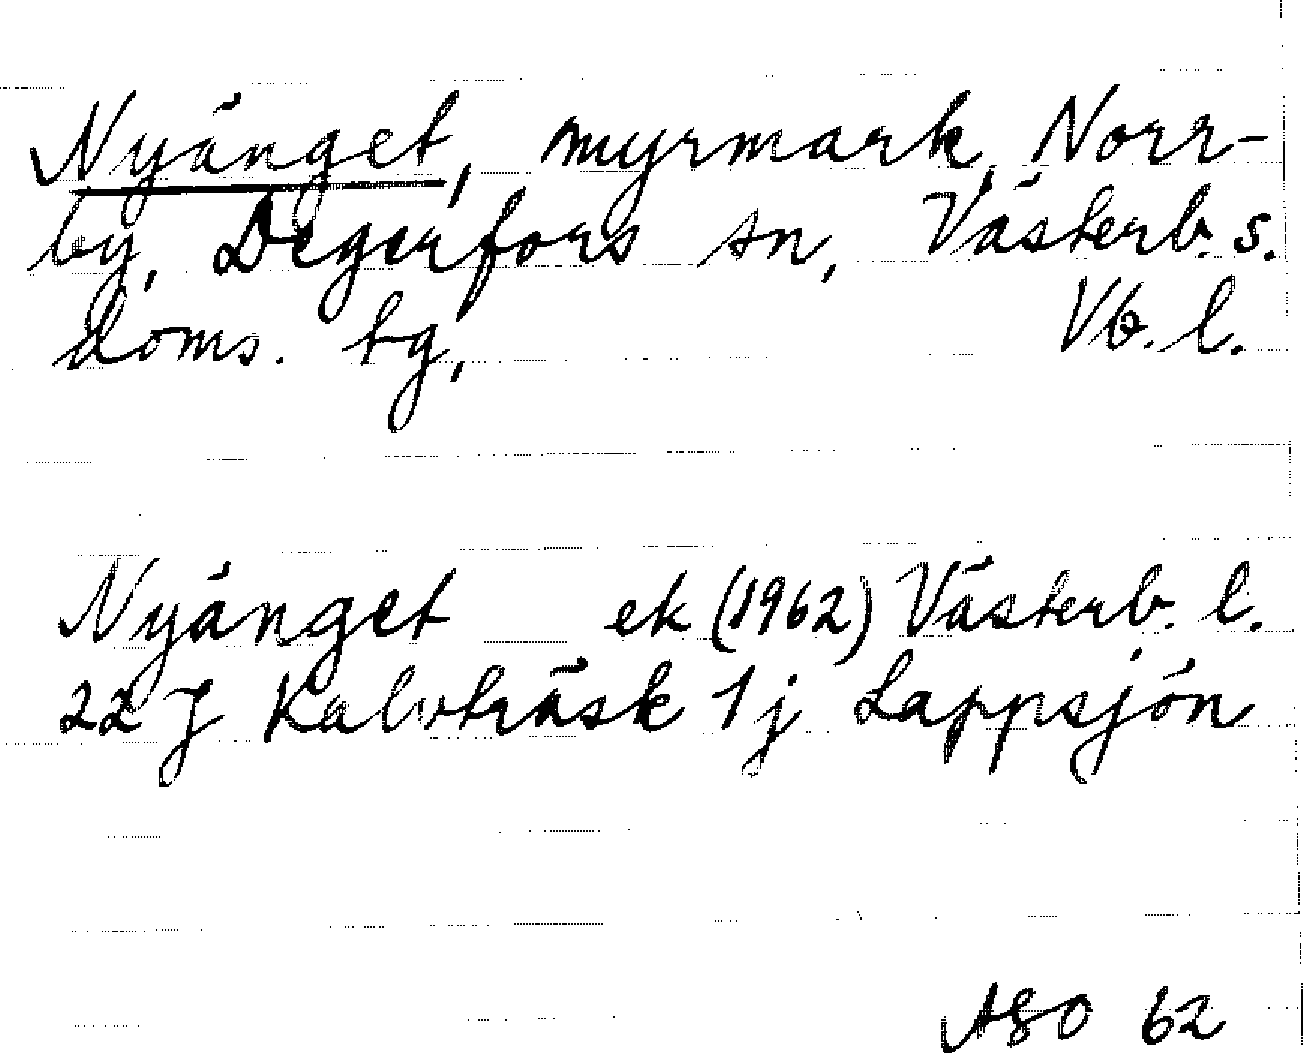 Nyänget, myrmark, Norr-
by, Degerfors sn, Västerb. s.
doms. tg, Vb. l.
Nyänget ek (1962) Västerb. l.
22 J Kalvträsk 1 j Lappsjön
ASO 62